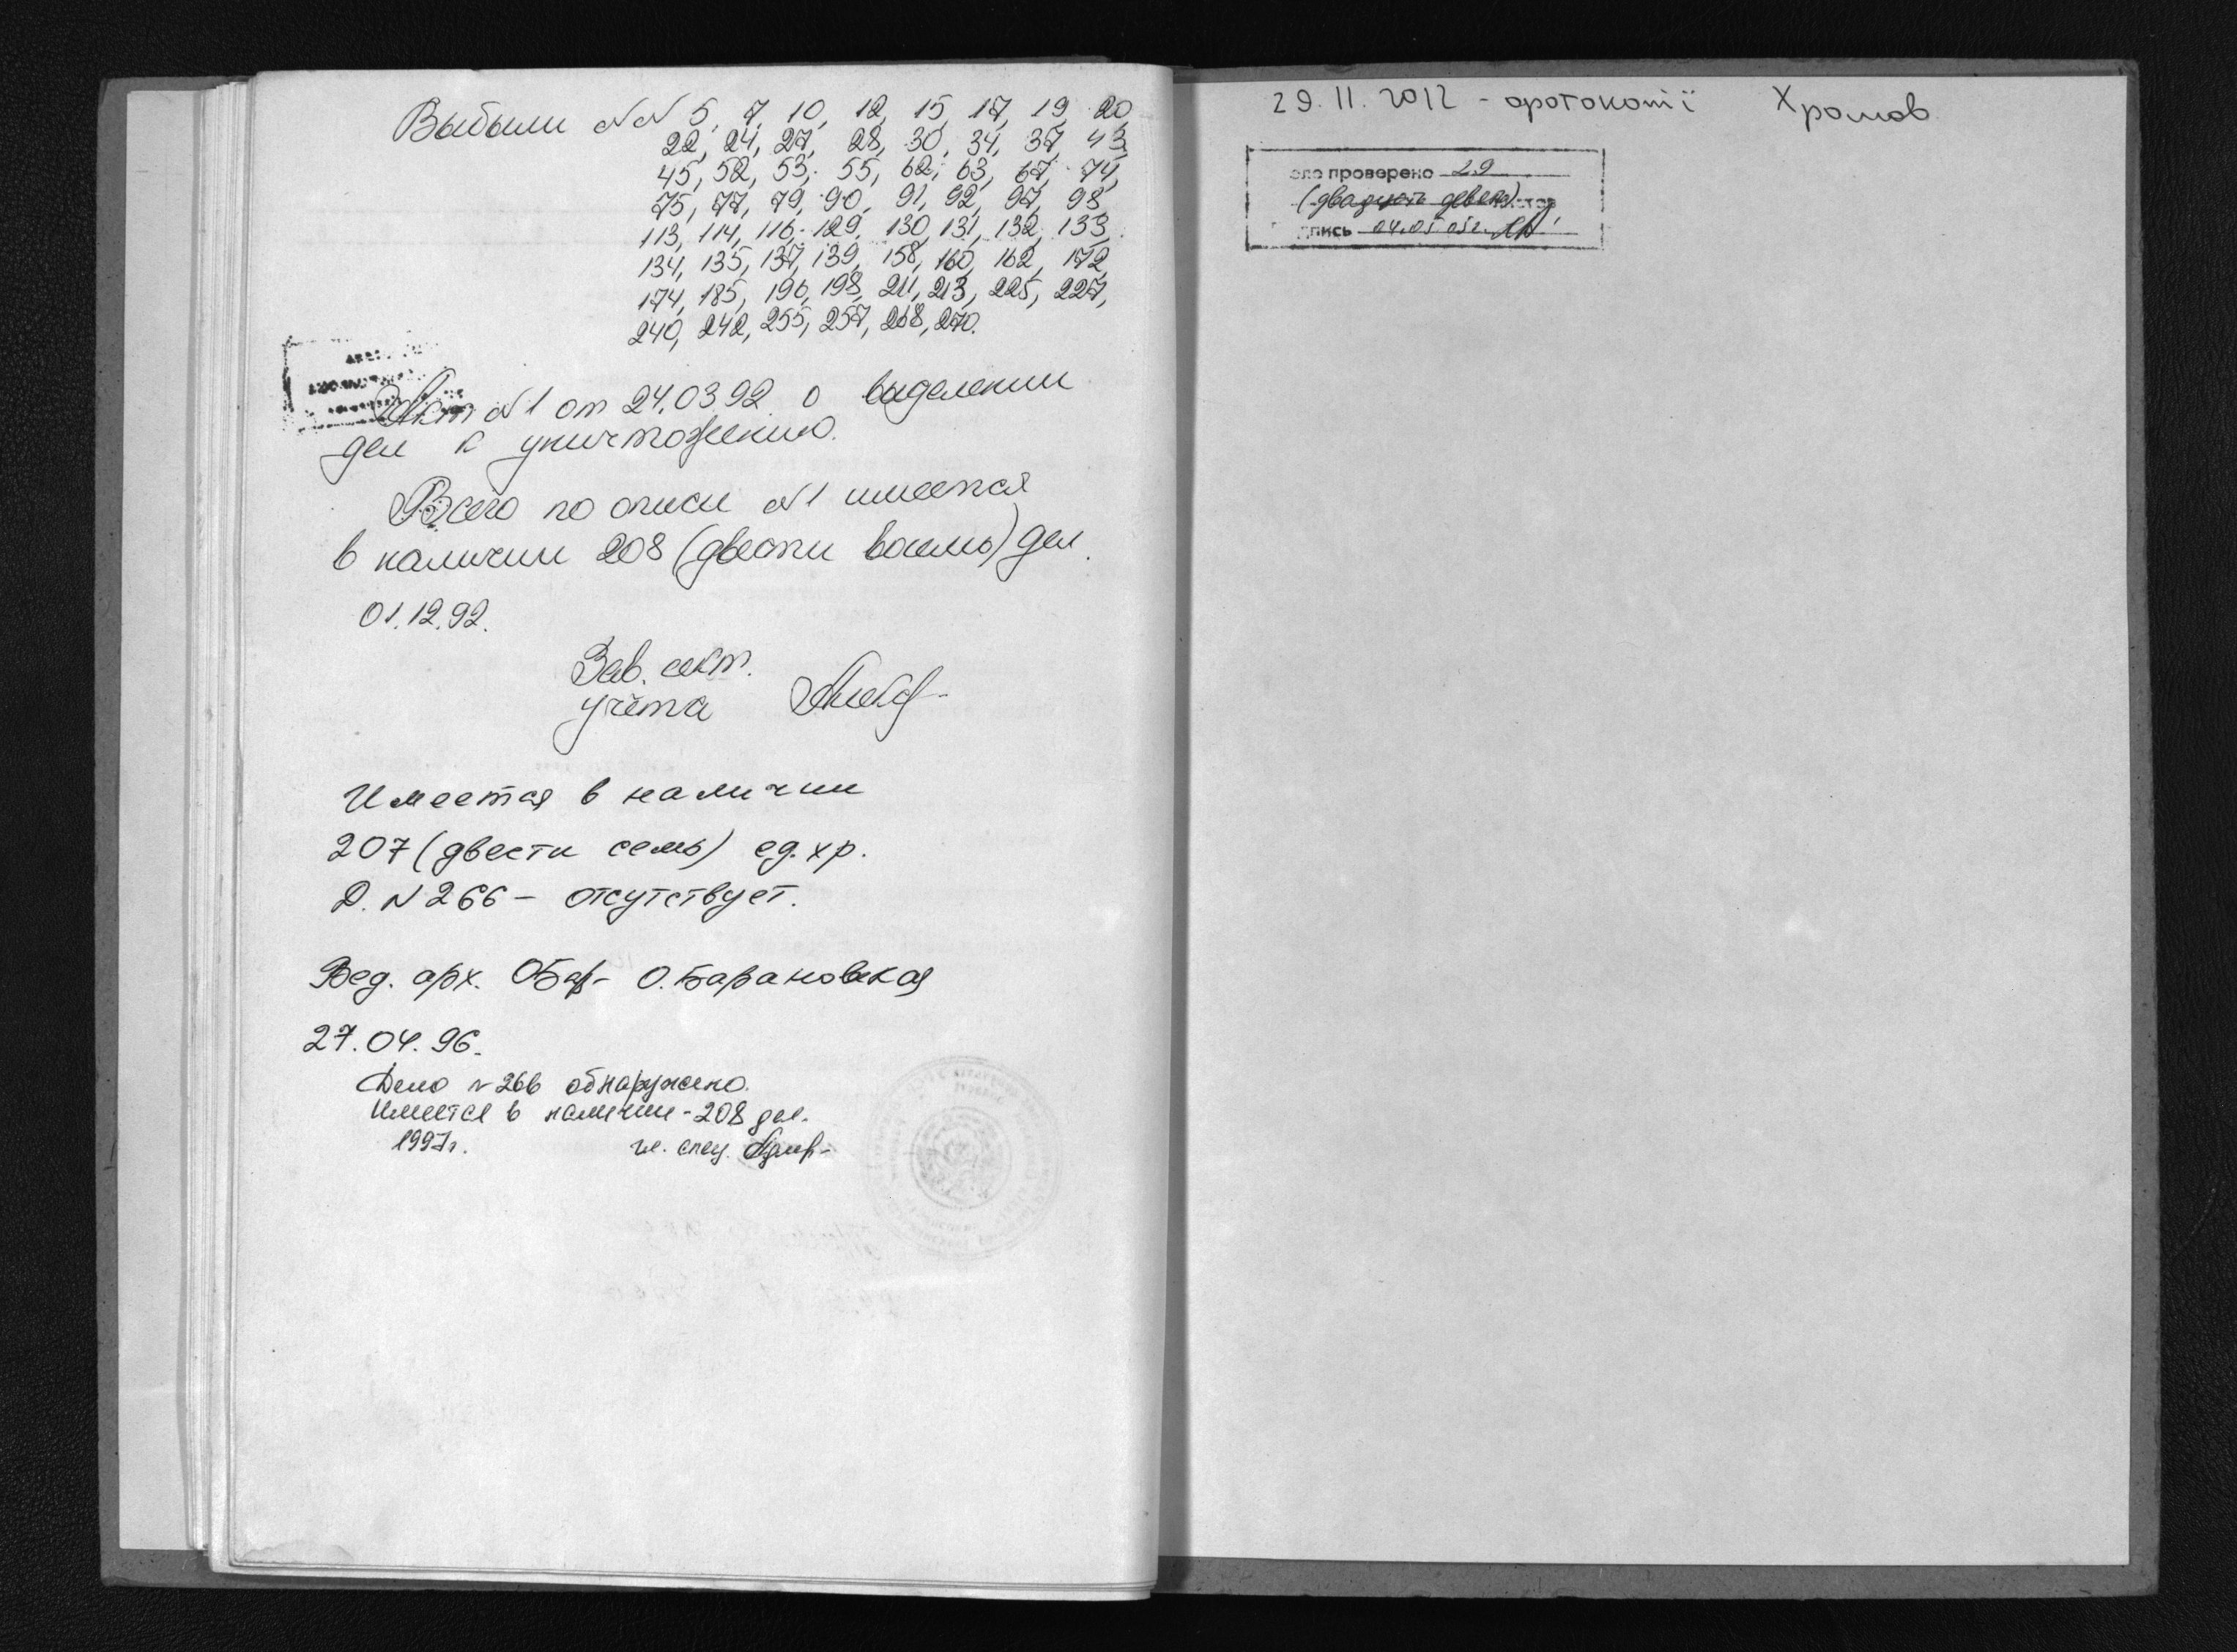 Выбыли №№ 5, 7, 10, 12, 15, 17, 19, 20,
22, 24, 27, 28, 30, 34, 37, 43,
45, 52, 53, 55, 62, 63, 67, 74,
75, 77, 79, 90, 91, 92, 97, 98
113, 114, 116-129, 130, 131, 132, 133,
134, 135, 137, 139, 158, 160, 162, 172,
174, 185, 196, 198, 211, 213, 225, 227,
240, 242, 255, 257, 268, 270.
Акт №1 от 24.03.92 о выделении
дел к уничтожению.
Всего по описи №1 имеется
в наличии 208 (двести восемь) дел.
01.12.92.
Зав. сект.
учёта
Имеется в наличии
207 (двести семь) ед. хр.
Д. N 266 – отсутствует.
Вед. арх. О. Барановская
27.04.96.
Дело № 266 обнаружено.
Имеется в наличии - 208 дел.
1997г. гл. спец.
29.11.2012 - фотокопії Хромов
ело проверено 29
(двадцать девять) листов
дпись 04.05 05г.